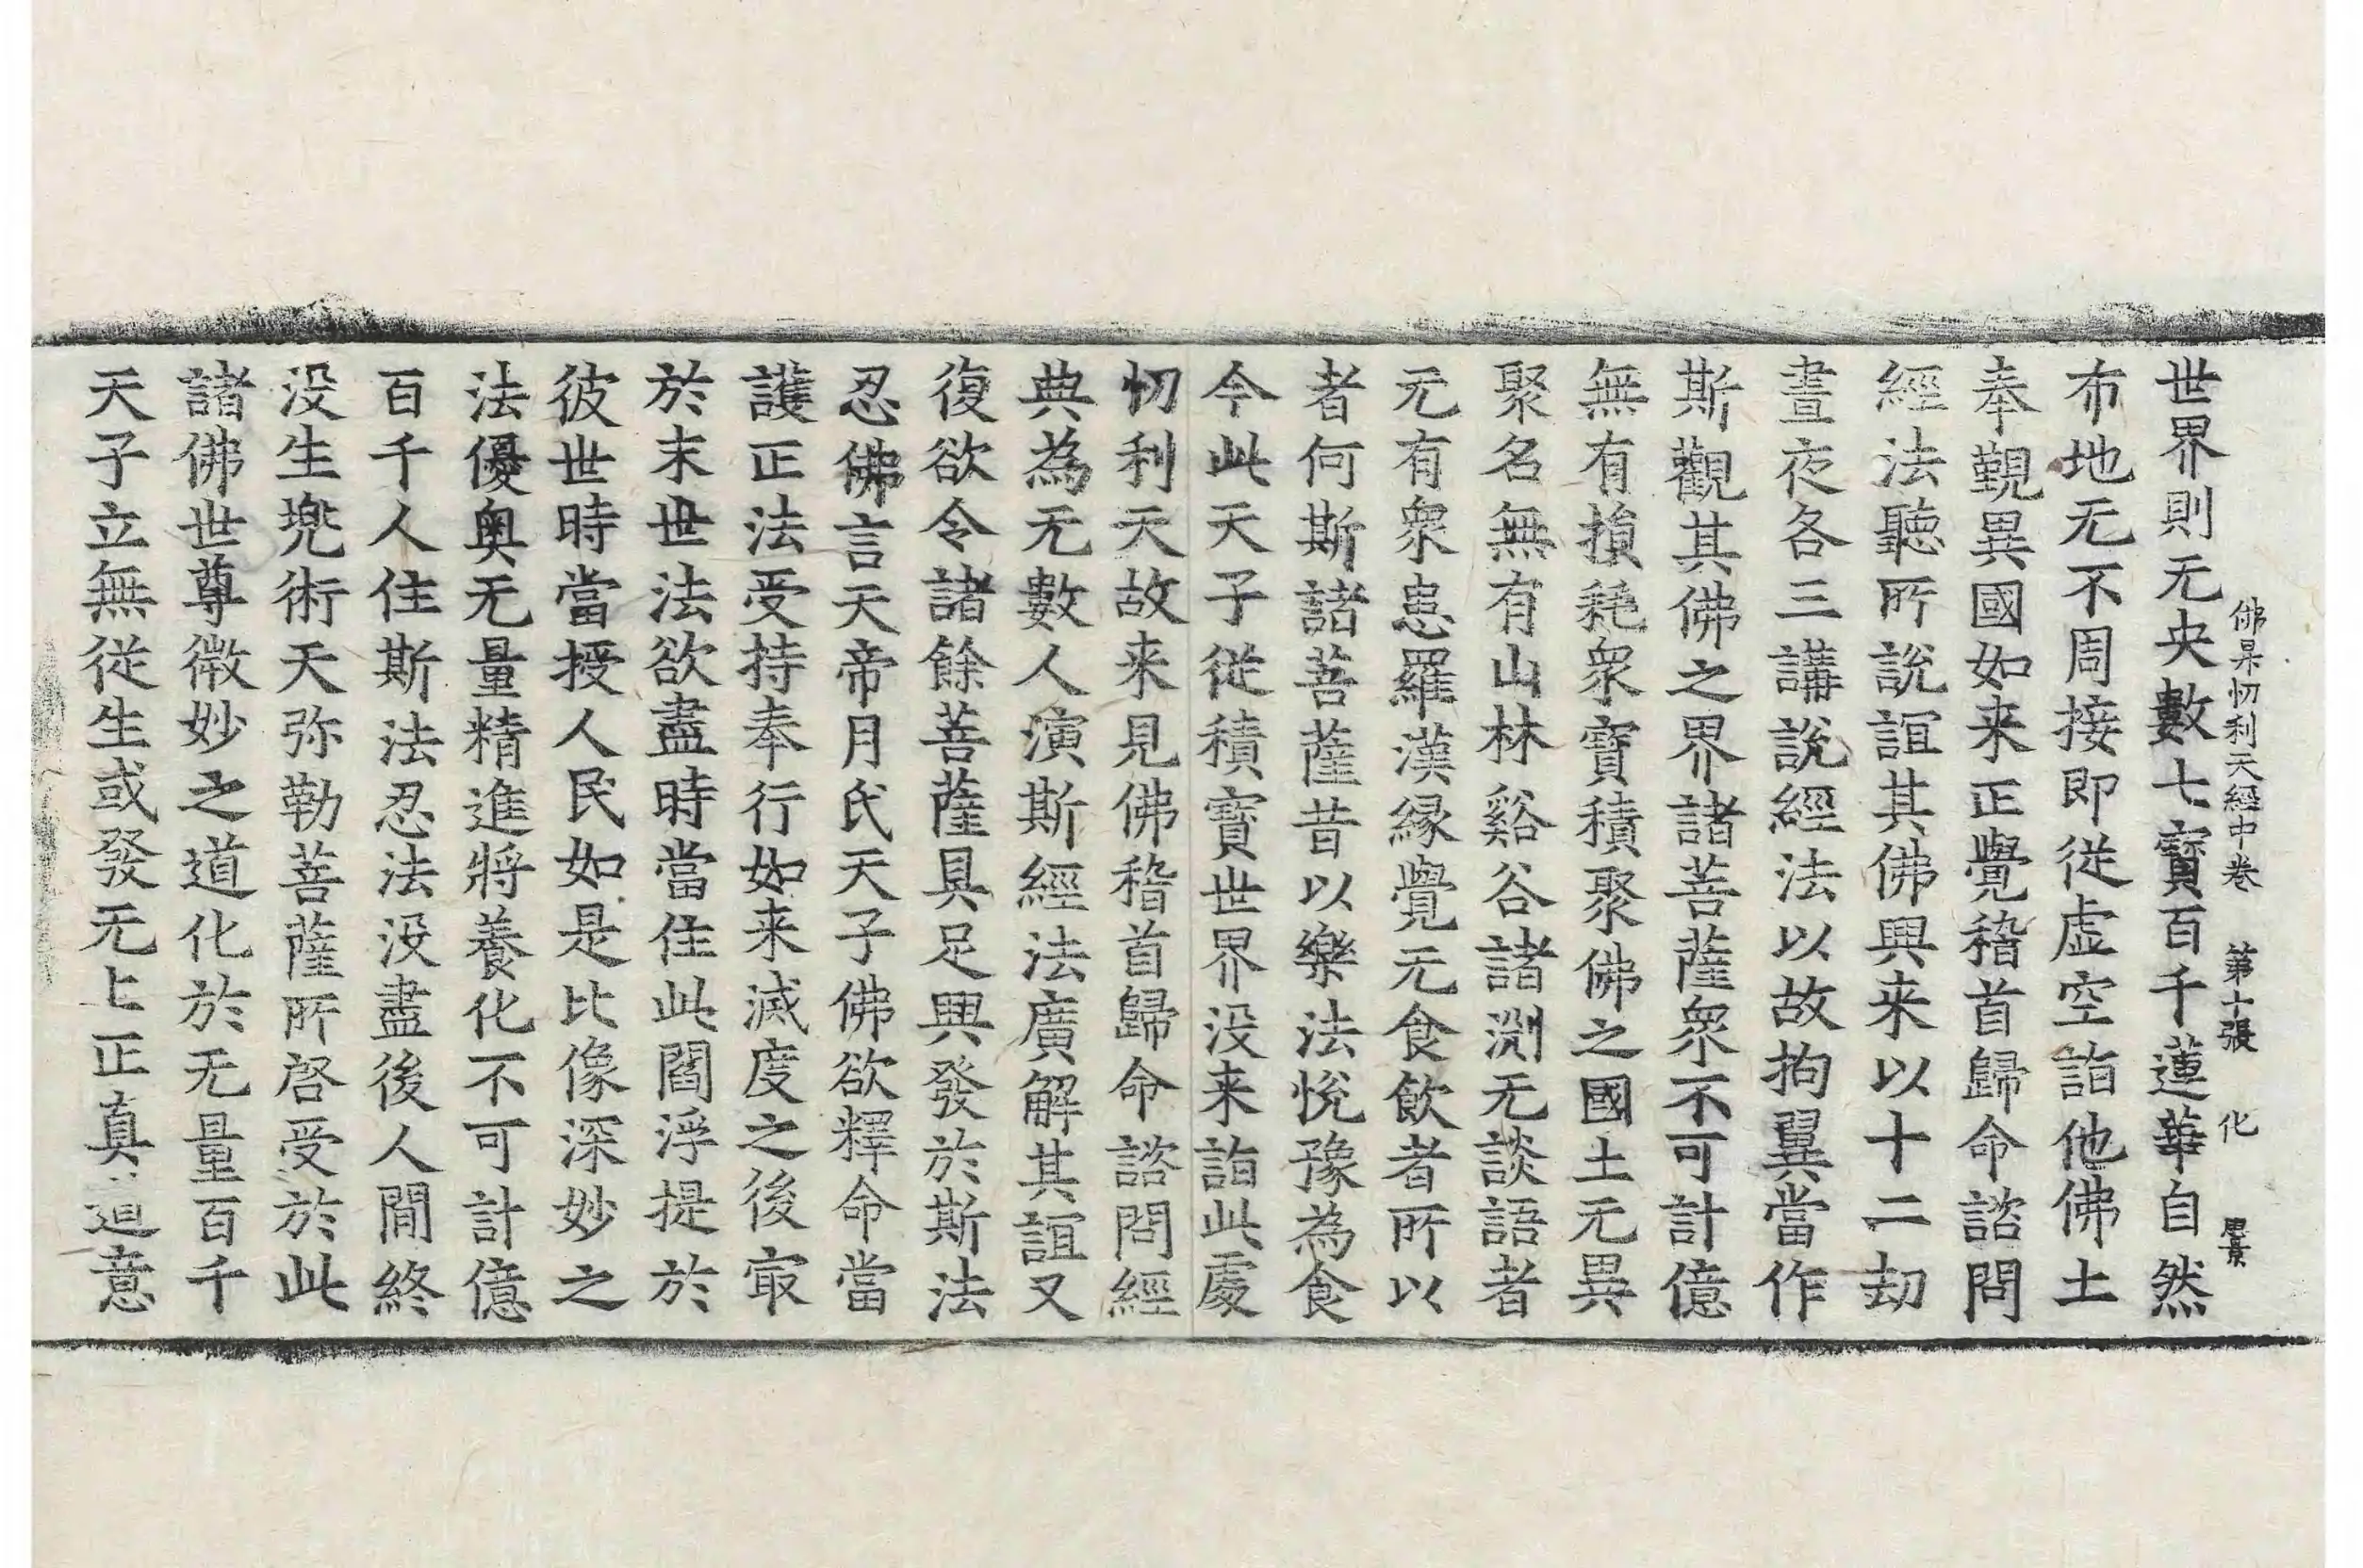 佛昇忉利天經中卷 第十張 化
世界則无央數七寳百千蓮華自然
布地无不周接即從虚空詣他佛土
奉覲異國如来正覺稽首歸命諮問
經法聽所說誼其佛興来以十二劫
晝夜各三講說經法以故拘翼當作
斯觀其佛之界諸菩薩衆不可計億
無有損耗衆寳積聚佛之國土无異
聚名無有山林谿谷諸渕无談語者
元有衆患羅漢縁覺元食飲者所以
者何斯諸菩薩昔以樂法恱豫為食
今此天子從積寳世界没来詣此處
忉利天故来見佛稽首歸命諮問經
典為无數人演斯經法廣解其誼又
復欲令諸餘菩薩具足興發於斯法
忍佛言天帝月氏天子佛欲釋命當
護正法受持奉行如来滅度之後㝡
於末世法欲盡時當住此閻浮提於
彼世時當授人民如是比像深妙之
法優奥无量精進將養化不可計億
百千人住斯法忍法没盡後人閒終
没生兠術天弥勒菩薩所啓受於此
諸佛世尊微妙之道化於无量百千
天子立無從生或發无上正真道意